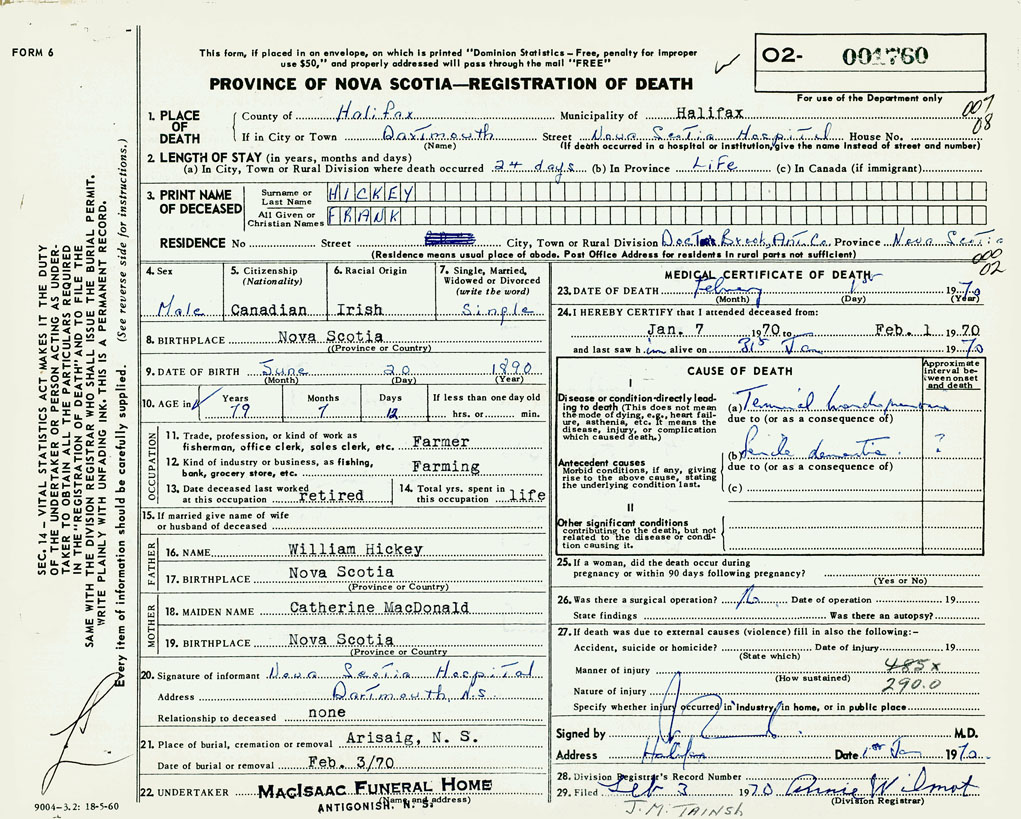 FORM 6
This form, if placed in an envelope, on which is printed "Dominion Statistics – Free, penalty for improper
use $50," and properly addressed will pass through the mail "FREE"
PROVINCE OF NOVA SCOTIA—REGISTRATION OF DEATH
02- 001760
For use of the Department only
007
08
1. PLACE OF DEATH
County of Halifax Municipality of Halifax
If in City or Town Dartmouth Street Nova Scotia Hospital House No.
(Name) (If death occurred in a hospital or institution, give the name instead of street and number)
2. LENGTH OF STAY (in years, months and days)
(a) In City, Town or Rural Division where death occurred 24 days (b) In Province Life (c) In Canada (if immigrant)
3. PRINT NAME OF DECEASED
Surname or Last Name HICKEY
All Given or Christian Names FRANK
RESIDENCE No Street City, Town or Rural Division Doctors Brook, Ant. Co. Province Nova Scotia
(Residence means usual place of abode. Post Office Address for residents in rural parts not sufficient)
000
02
4. Sex Male
5. Citizenship (Nationality) Canadian
6. Racial Origin Irish
7. Single, Married, Widowed or Divorced (write the word) Single
8. BIRTHPLACE Nova Scotia
((Province or Country)
9. DATE OF BIRTH June 20 1890
(Month) (Day) (Year)
10. AGE in Years 79 Months 7 Days 12 If less than one day old hrs. or min.
OCCUPATION
11. Trade, profession, or kind of work as fisherman, office clerk, sales clerk, etc. Farmer
12. Kind of industry or business, as fishing, bank, grocery store, etc. Farming
13. Date deceased last worked at this occupation retired
14. Total yrs. spent in this occupation life
15. If married give name of wife or husband of deceased
FATHER
16. NAME William Hickey
17. BIRTHPLACE Nova Scotia
(Province or Country)
MOTHER
18. MAIDEN NAME Catherine MacDonald
19. BIRTHPLACE Nova Scotia
(Province or Country
20. Signature of informant Nova Scotia Hospital
Address Dartmouth, N.S.
Relationship to deceased none
21. Place of burial, cremation or removal Arisaig, N. S.
Date of burial or removal Feb. 3/70
22. UNDERTAKER MACISAAC FUNERAL HOME
(Name and address)
ANTIGONISH, N. S.
MEDICAL CERTIFICATE OF DEATH
23. DATE OF DEATH February 1st 1970
(Month) (Day) (Year)
24. I HEREBY CERTIFY that I attended deceased from:
Jan. 7 1970 to Feb. 1 1970
and last saw him alive on 31st Jan 1970
CAUSE OF DEATH
Approximate interval between onset and death
I
Disease or condition directly leading to death (This does not mean the mode of dying, e.g., heart failure, asthenia, etc. It means the disease, injury, or complication which caused death.)
(a) Terminal bronchopneumonia
due to (or as a consequence of)
Antecedent causes
Morbid conditions, if any, giving rise to the above cause, stating the underlying condition last.
(b) Senile dementia. ?
due to (or as a consequence of)
(c)
II
Other significant conditions
contributing to the death, but not related to the disease or condition causing it.
25. If a woman, did the death occur during
pregnancy or within 90 days following pregnancy?
(Yes or No)
26. Was there a surgical operation? No Date of operation 19
State findings Was there an autopsy?
27. If death was due to external causes (violence) fill in also the following:–
Accident, suicide or homicide? Date of injury 19
(State which)
Manner of injury 485x
(How sustained)
290.0
Nature of injury
Specify whether injury occurred in industry, in home, or in public place
Signed by M.D.
Address Halifax Date 1st Jan 1970
28. Division Registrar's Record Number
29. Filed Feb 3 1970 Annie Wilmot
(Division Registrar)
J. M. TAINSH
SEC. 14 – VITAL STATISTICS ACT MAKES IT THE DUTY
OF THE UNDERTAKER OR PERSON ACTING AS UNDER-
TAKER TO OBTAIN ALL THE PARTICULARS REQUIRED
IN THE "REGISTRATION OF DEATH" AND TO FILE THE
SAME WITH THE DIVISION REGISTRAR WHO SHALL ISSUE THE BURIAL PERMIT.
WRITE PLAINLY WITH UNFADING INK. THIS IS A PERMANENT RECORD.
Every item of information should be carefully supplied. (See reverse side for instructions.)
9004-3.2: 18-5-60